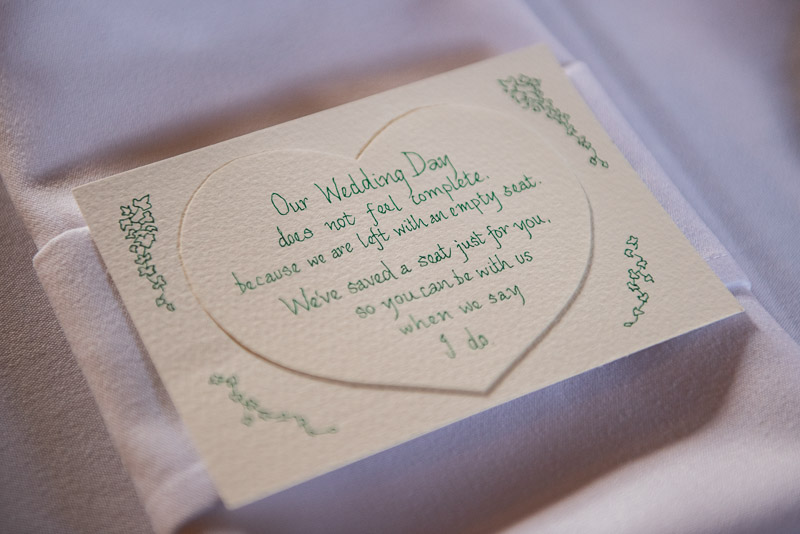 Our Wedding Day
does not feel complete.
because we are left with an empty seat.
We've saved a seat just for you,
so you can be with us
when we say
I do